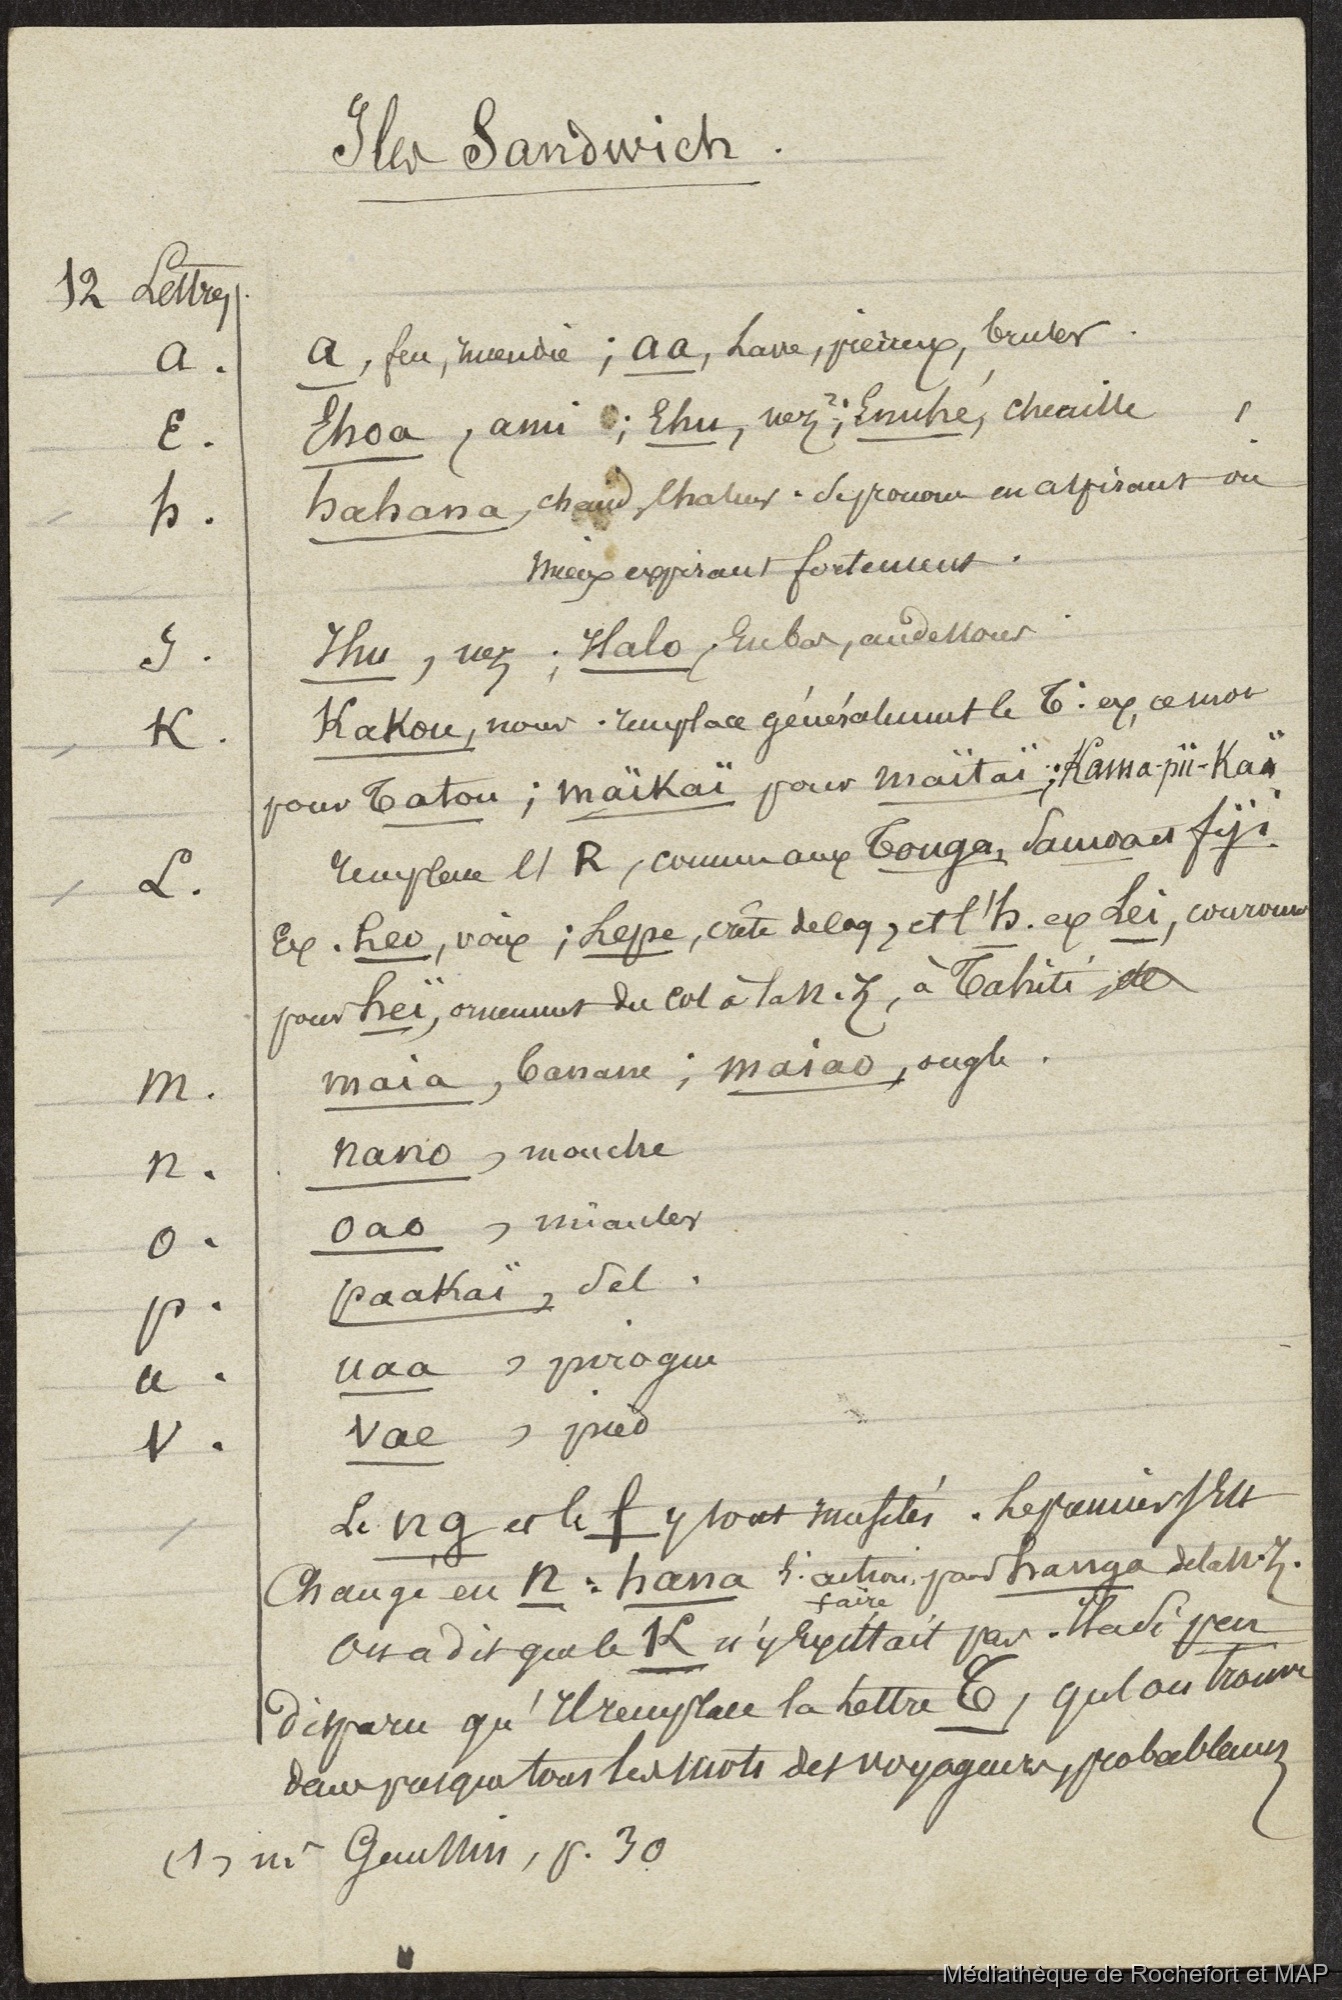 Iles Sandwich.
12 Lettres.
a. a, feu, incendie; aa, lave, pierreux, bruler.
E. Ehoa, ami; Ehu, nez?; Enuhé, chenille
h. hahana, chaud, chaleur. Se prononce en aspirant ou
mieux expirant fortement.
I. Ihu, nez; Ilalo, en bas, au dessous.
K. Kakou, nous. remplace généralement le T. ex, ce mot
pour Tatou; maïkaï pour maïtaï; Kama-pii-Kaï
L. remplace l'R, comme aux Tonga, Samoa et fiji.
Ex. Leo, voix; Lepe, crête de coq, et l'h. ex Lei, couronne
pour heï, ornement du col à la N.Z, à Tahiti,
m. maia, banane; maiao, ongle.
n. nano, mouche
o. oao, miauler
p. paakaï, Sel.
u. uaa, pirogue
V. Vae, pied
Le ng et le f y sont inusités. Le premier s'est
changé en n: hana action, pour hanga de la N.Z.
faire
On a dit que le K n'y existait pas. Il a si peu
disparu qu'il remplace la lettre T, qu'on trouve
dans presque tous les mots des voyageurs, probablem
(1) mr Gaussin, p. 30
Médiathèque de Rochefort et MAP